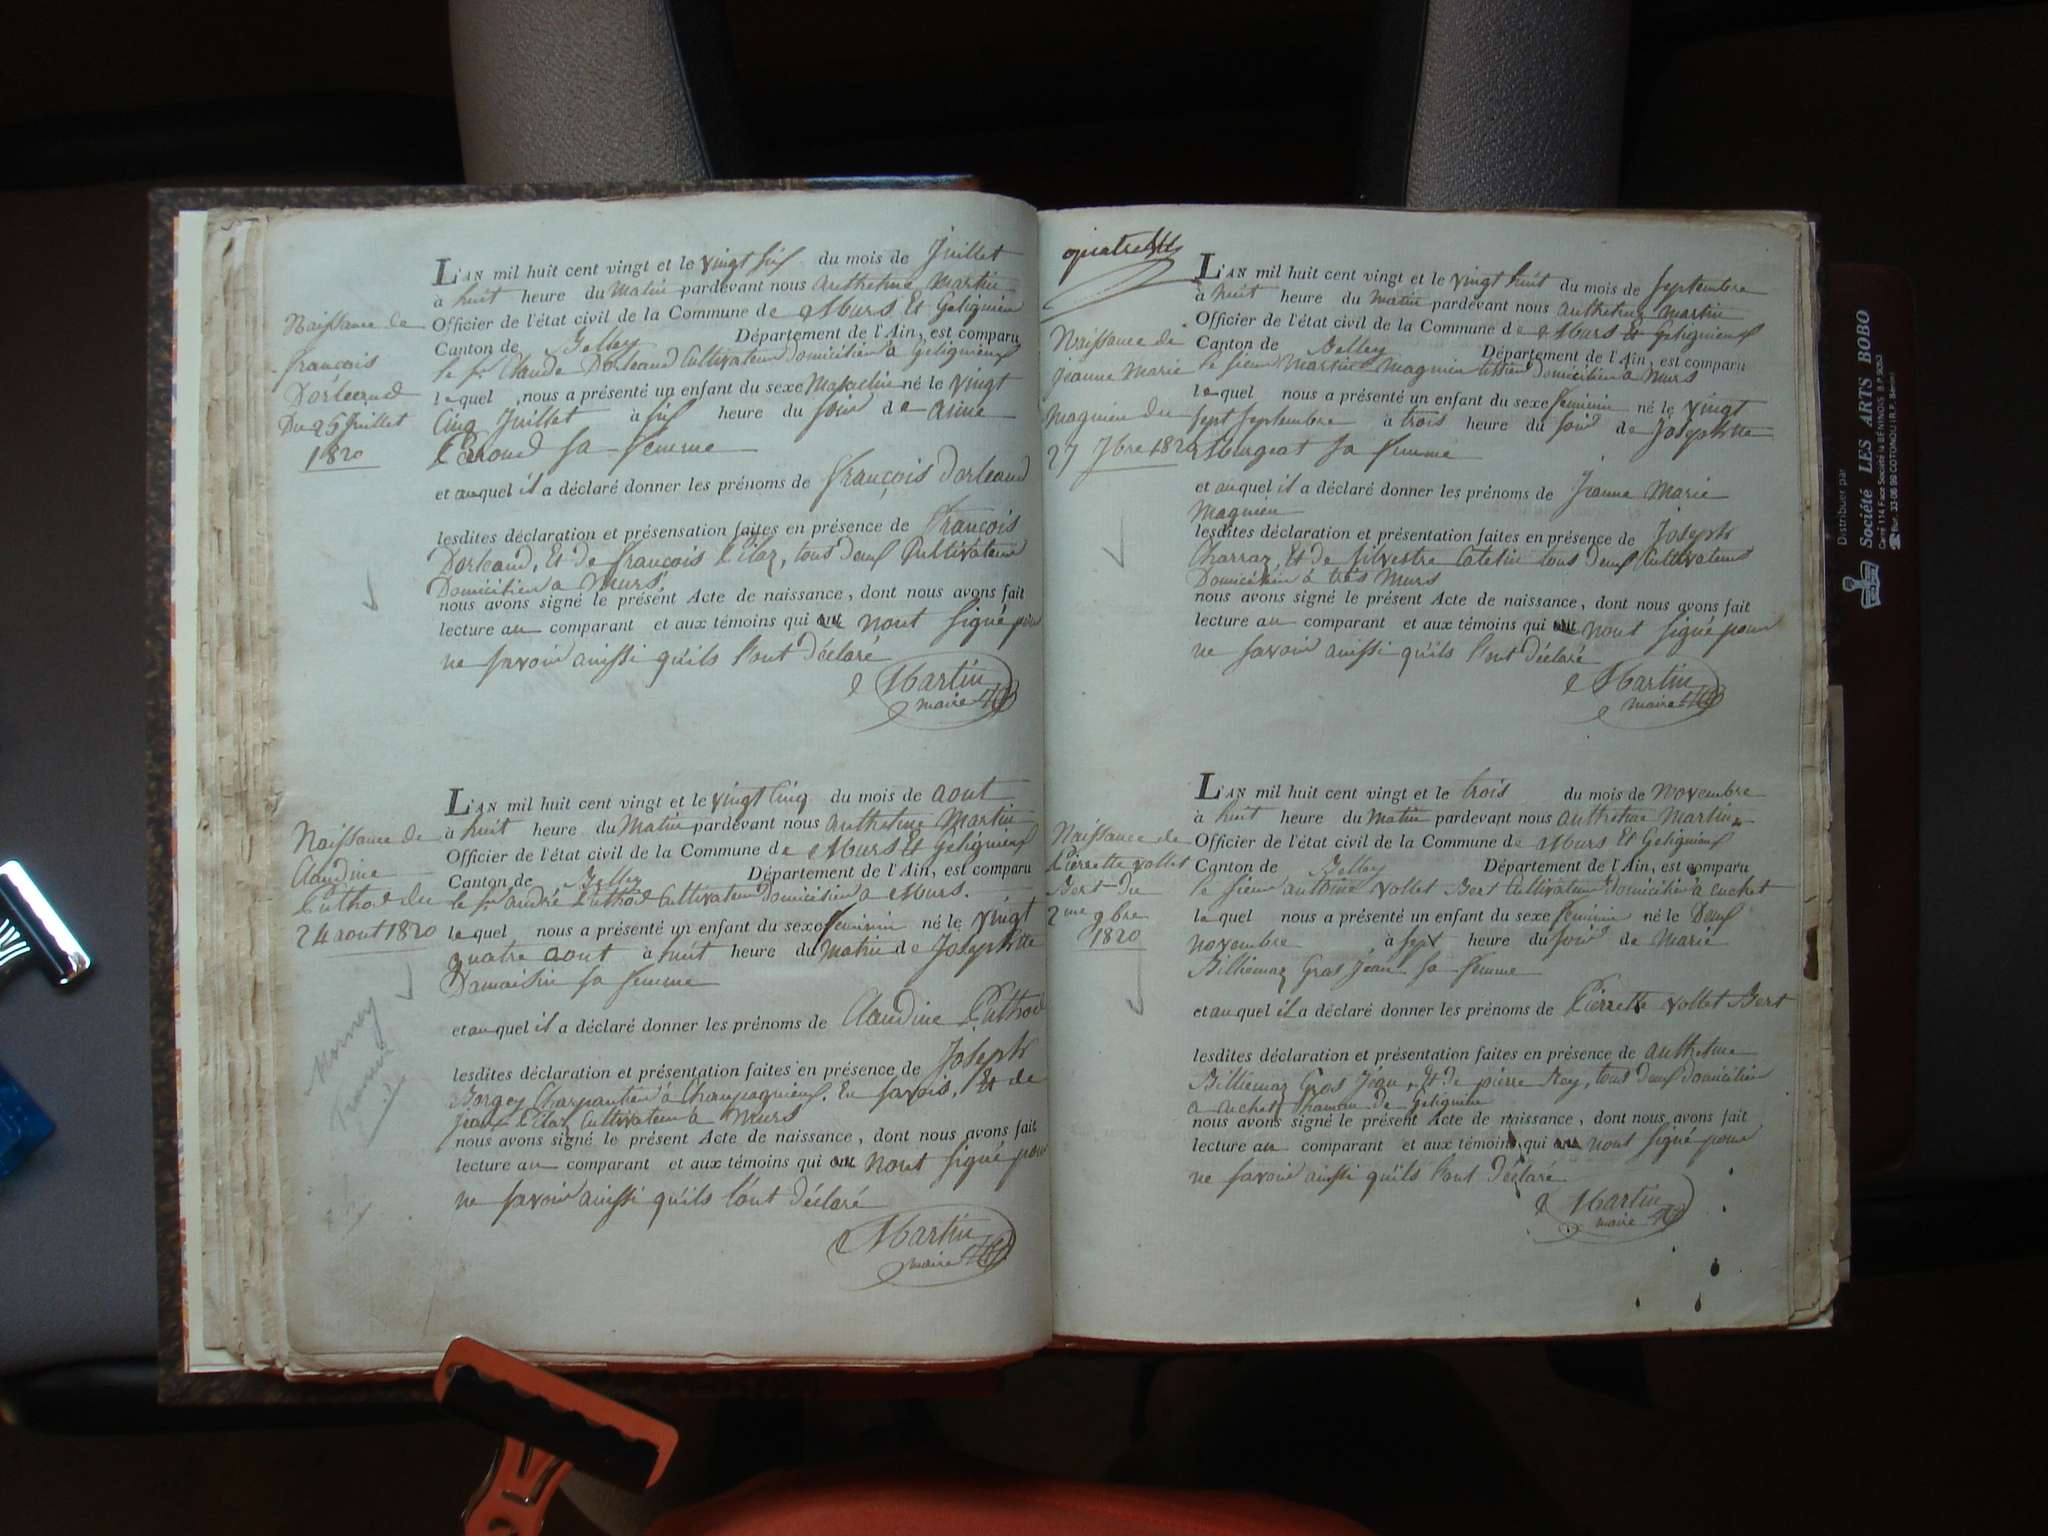 L'AN mil huit cent vingt et le vingt six du mois de Juillet
à huit heure du Matin pardevant nous anthelme Martin
Officier de l'état civil de la Commune de Murs Et Gelignieux
Canton de Belley Département de l'Ain, est comparu
le sr Claude Dorleand Cultivateur Domicilien a Gelignieux
lequel nous a présenté un enfant du sexe Masculin né le vingt
Cinq Juillet à six heure du soir de
sa femme
et auquel il a déclaré donner les prénoms de françois Dorleand
lesdites déclaration et présensation faites en présence de François
Dorleand, Et de François Pélaz, tous deux Cultivateur
Domicilien a Murs
nous avons signé le présent Acte de naissance, dont nous avons fait
lecture au comparant et aux témoins qui ont nont signé pour
ne savoir ainssi quils l'ont déclaré
Martin
maire
Naissance de
françois
Dorleand
Du 25 Juillet
1820
L'AN mil huit cent vingt et le vingt Cinq du mois de aout
à huit heure du Matin pardevant nous anthelme Martin
Officier de l'état civil de la Commune de Murs Et Gelignieux
Canton de Belley Département de l'Ain, est comparu
le sr andré Puthod Cultivateur Domicilien a Murs.
lequel nous a présenté un enfant du sexe feminin né le vingt
quatre aout à huit heure du Matin de Josephtte
Damaisin sa femme
et auquel il a déclaré donner les prénoms de Claudine Puthod
lesdites déclaration et présentation faites en présence de Joseph
Borgey Charpantier à Champagnieux. En savois, Et de
Jean Pélaz Cultivateur a Murs
nous avons signé le présent Acte de naissance, dont nous avons fait
lecture au comparant et aux témoins qui ont nont signé pour
ne savoir ainssi quils l'ont déclaré
Martin
maire
Naissance de
Claudine
Puthod du
24 aout 1820
L'AN mil huit cent vingt et le vingt huit du mois de septembre
à huit heure du Matin pardevant nous anthelme Martin
Officier de l'état civil de la Commune de Murs Et Gelignieux
Canton de Belley Département de l'Ain, est comparu
le sieur Martin Magnin tissier domicilien à Murs
lequel nous a présenté un enfant du sexe feminin né le vingt
sept septembre à trois heure du soir de Josephtte
Mugeat sa femme
et auquel il a déclaré donner les prénoms de Jeanne Marie
Magnien
lesdites déclaration et présentation faites en présence de Joseph
Charraz, Et de Silvestre Catelin tous deux Cultivateur
Domicilien à Murs
nous avons signé le présent Acte de naissance, dont nous avons fait
lecture au comparant et aux témoins qui ont nont signé pour
ne savoir ainssi quils l'ont déclaré
Martin
maire
Naissance de
jeanne Marie
Magnien du
27 7bre 1820
L'AN mil huit cent vingt et le trois du mois de Novembre
à huit heure du Matin pardevant nous anthelme Martin
Officier de l'état civil de la Commune de Murs Et Gelignieux
Canton de Belley Département de l'Ain, est comparu
le sieur antoine Vollet Bert Cultivateur Domicilien à cuchet
lequel nous a présenté un enfant du sexe feminin né le Deux
novembre à sept heure du soir de Marie
Billiemaz Gros Jean sa femme
et auquel il a déclaré donner les prénoms de Pierrette Vollet Bert
lesdites déclaration et présentation faites en présence de anthelme
Billiemaz Gros Jean, Et de pierre Rey, tous deux domicilien
a cuchet hamau de Gelignieu
nous avons signé le présent Acte de naissance, dont nous avons fait
lecture au comparant et aux témoins qui ont nont signé pour
ne savoir ainssi quils l'ont déclaré
Martin
maire
Naissance de
Pierrette Vollet
Bert du
2me 9bre
1820
Distribuer par
Société LES ARTS BOBO